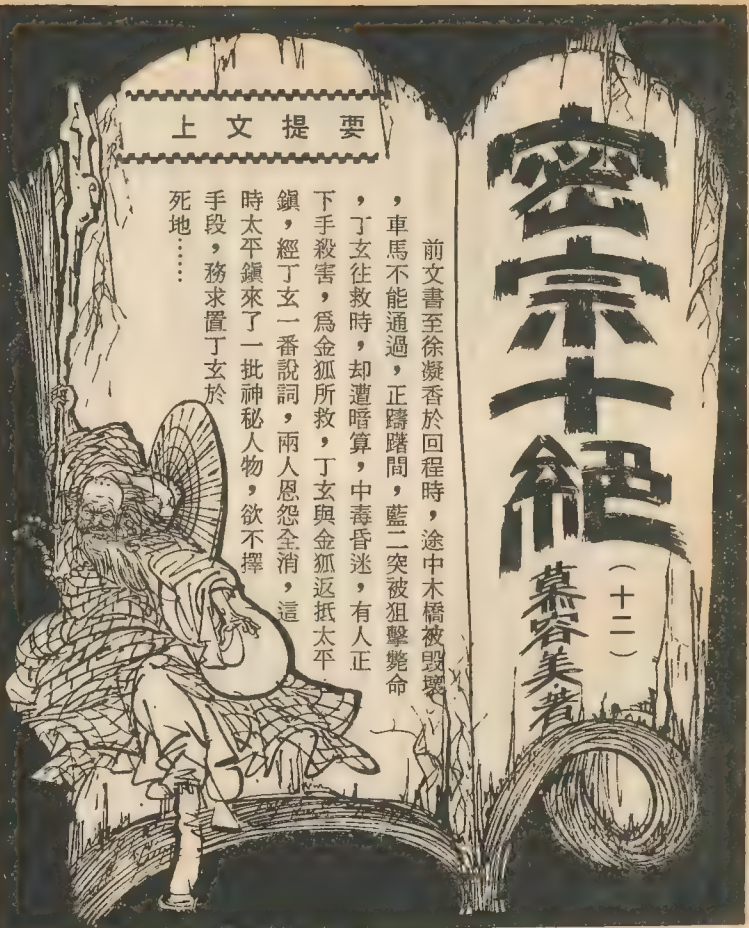 密宗十絕
（十二）
慕容美著
上文提要
前文書至徐凝香於回程時，途中木橋被毀壞
，車馬不能通過，正躊躇間，藍二突被狙擊斃命
，丁玄往救時，却遭暗算，中毒昏迷，有人正
下手殺害，爲金狐所救，丁玄與金狐返抵太平
鎭，經丁玄一番說詞，兩人恩怨全消，這
時太平鎭來了一批神秘人物，欲不擇
手段，務求置丁玄於
死地……